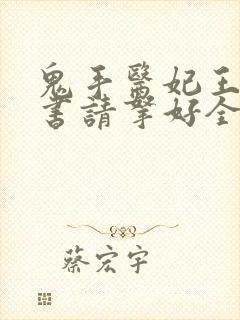 鬼手醫妃王
書請拏好全
蔡宏宇